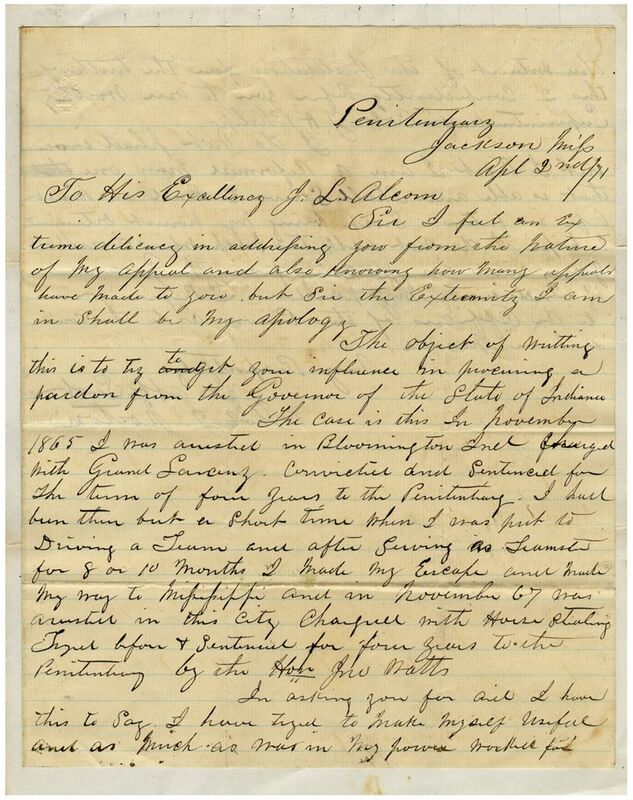 Penitentiary
Jackson Miss
Apl 2nd /71
To His Excellency J. L. Alcorn
Sir I feel an Ex
treme delicacy in addressing you from the Nature
of My Appeal and also Knowing how Many appeals
have Made to you but Sir the Extremity I am
in Shall be My apology
The object of writting
this is to try to get your influence in procuring a
pardon from the Governor of the State of Indiana
The case is this In November
1865 I was arrested in Bloomington Ind Charged
With Grand Larceny. Convicted and Sentenced for
The term of four years to the Penitentiary. I had
been then but a Short time when I was put to
Driving a Team and after Serving as Teamster
for 8 or 10 Months I Made My Escape and Made
My way to Mississippi and in November 67 was
arrested in this City Charged with Horse Stealing
Tryed before & Sentenced for four years to the
Penitentiary by the Hon Jno Watts
In asking you for aid I have
this to Say. I have tryed to Make Myself Useful
and as Much as was in My power worked for